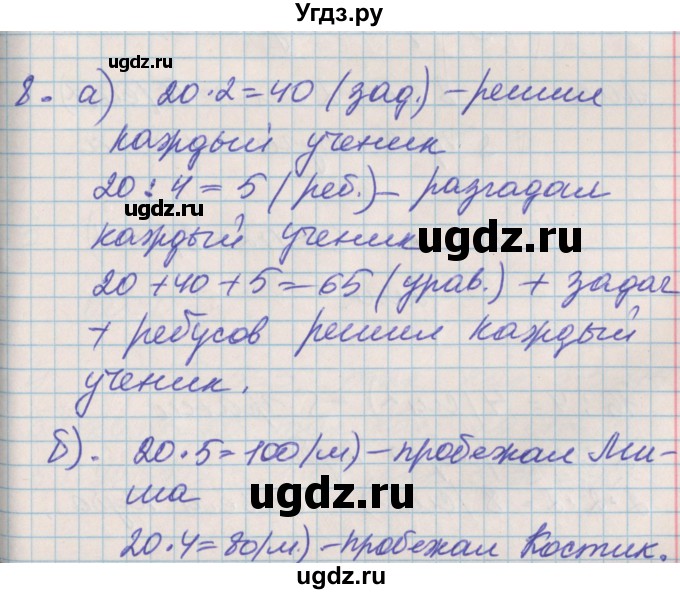 Угдз.ру
ugdz.ru
8. а) 20·2=40 (зад.) – решил
каждый ученик
20:4=5 (реб.) – разгадал
ugdz.ru
каждый ученик
ugdz.ru
20+40+5=65 (урав.) + задач
+ ребусов решил каждый
ученик.
ugdz.ru
б). 20·5=100 (м) – пробежал Ми-
ша
ugdz.ru
20·4=80 (м.) – пробежал Костик.
ugdz.ru